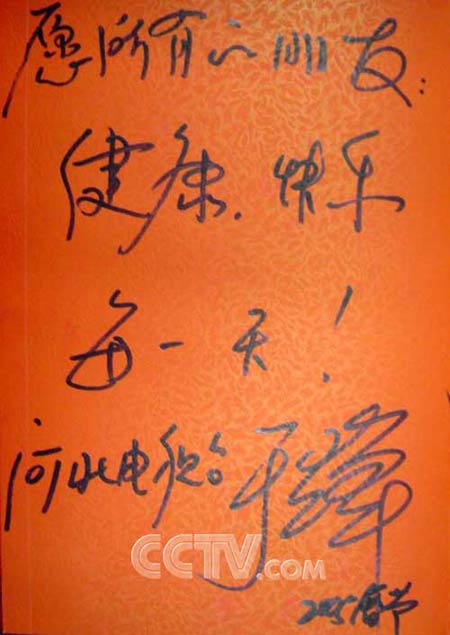 愿所有的朋友:
健康、快乐
每一天!
河北电视台
CCTV.com
2005春节